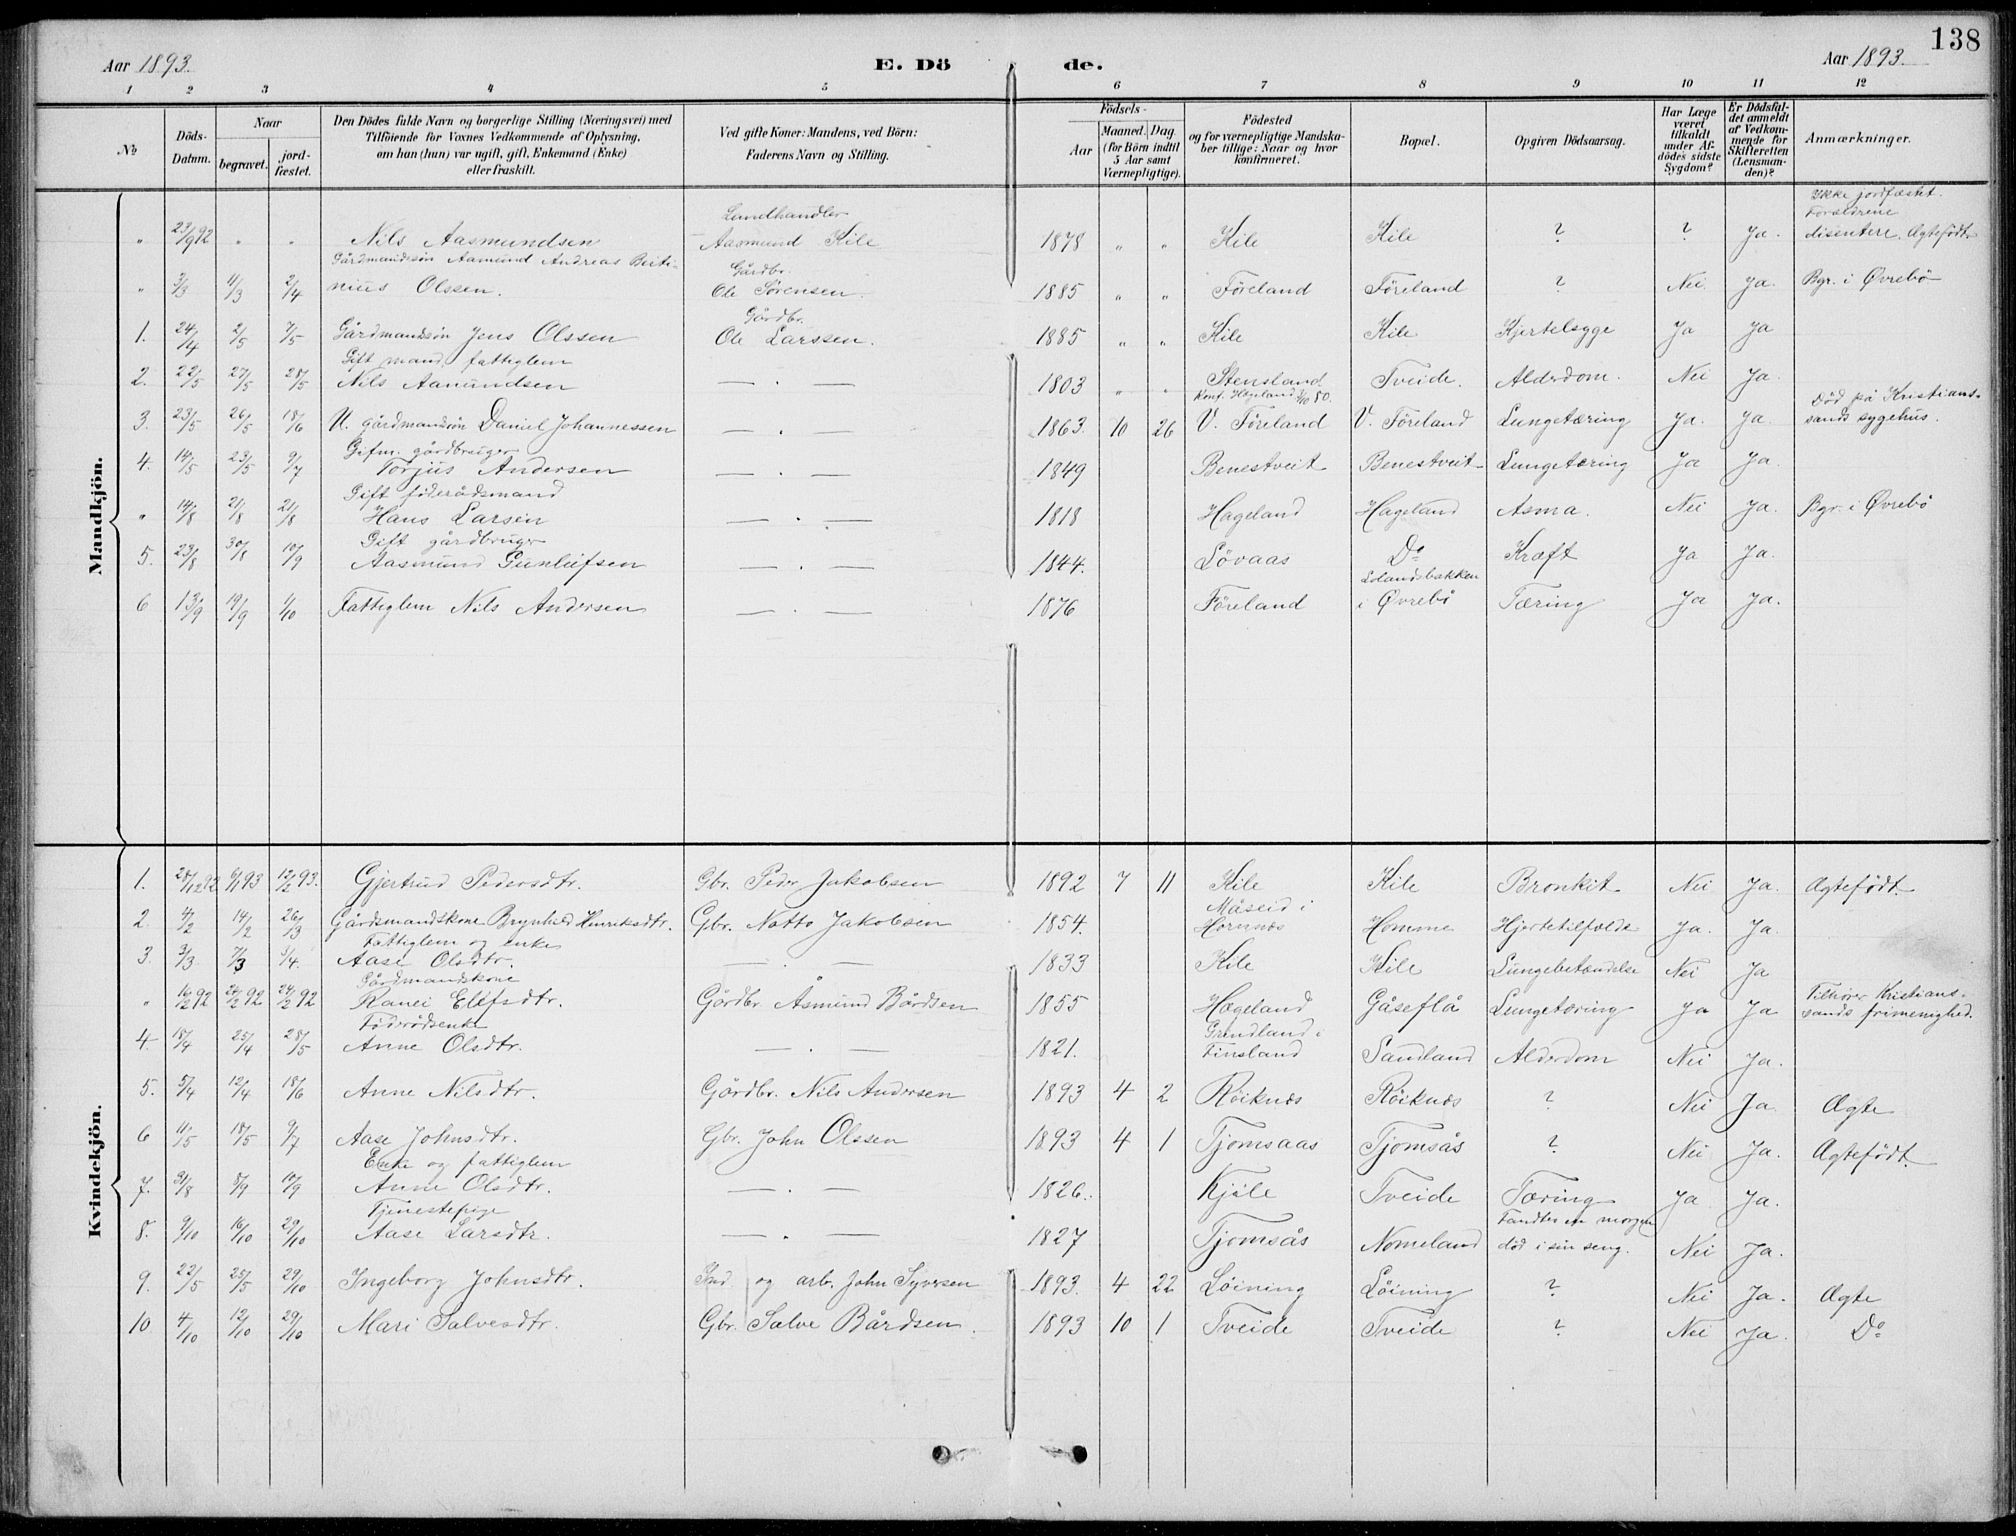 138
Aar 1893. E. Dö de. Aar 1893
1 2 3 4 5 6 7 8 9 10 11 12
№ Döds-Datum. Naar begravet. jordfæstet. Den Dödes fulde Navn og borgerlige Stilling (Næringsvei) med Tilföiende for Voxnes Vedkommende af Oplysning, om han (hun) var ugift, gift, Enkemand (Enke) eller fraskilt. Ved gifte Koner: Mandens, ved Börn: Faderens Navn og Stilling. Födsels- Aar Maaned. Dag (for Börn indtil 5 Aar samt Værnepligtige). Födested og for værnepligtige Mandskaber tillige: Naar og hvor konfirmeret. Bopæl. Opgiven Dödsaarsag. Har Læge været tilkaldt under Afdödes sidste Sygdom? Er Dödsfaldet anmeldt af Vedkommende for Skifteretten (Lensmanden)? Anmærkninger.
Mandkjön.
Ikke jordfæstet. Forældrene
" 23/9 92 " " Nils Aasmundsen Aasmund Kile 1878 " " Kile Kile ? ? Ja. disentere. Ægtefödt
Gårdmandssön Aamund Andreas Berti- Gårdbr.
" 3/3 11/3 2/4 nius Olssen. Ole Sørensen. 1885 " " Föreland Föreland ? Nei Ja. Bgr. i Øvrebö
Gårdbr.
1. 24/4 2/5 7/5 Gårdmandssön Jens Olssen Ole Larssen. 1885 " " Kile Kile Kjertelsyge Ja Ja
Gift mand, fattiglem
2. 22/5 27/5 28/5 Nils Aamundsen — . — 1803 " " Stensland Tveide. Alderdom. Nei Ja.
Konf. Hægeland 3/10 80. Död på Kristians-
3. 23/5 26/5 18/6 U. gårdmandssön Daniel Johannessen — . — 1863 10 26 V. Föreland V. Föreland Lungetæring Ja. Ja. sands sygehus.
Gifm. gårdbruger
4. 14/5 23/5 9/7 Torjus Andersen — . — 1849 Benestveit Benestveit Lungetæring Ja Ja.
Gift föderådsmand
" 14/8 21/8 21/8 Hans Larsen — . — 1818 Hageland Hageland Asma. Nei Ja. Bgr. i Øvrebö
Gift gårdbruger
5. 23/8 30/8 10/9 Aasmund Gunlufsen — . — 1844. Lövaas Do Kræft Ja Ja.
Lolandsbakken
6 13/9 19/9 1/10 Fattiglem Nils Andersen — . — 1876 Föreland i Øvrebö Tæring Ja Ja.
Kvindekjön.
1. 28/12 92 6/1 93 12/2 93. Gjertrud Pedersdtr. Gbr. Peder Jakobsen 1892 7 11 Kile Kile Bronkit Nei Ja. Ægtefödt.
Måseid i
2. 4/2 14/2 26/3 Gårdsmandskone Brynhild Henriksdtr. Gbr. Notto Jakobsen 1854. Hornnæs Homme Hjertetilfælde Ja. Ja.
Fattiglem og enke
3. 3/3 7/3 3/4. Aase Olsdtr. — . — 1833 Kile Kile Lungebetændelse Nei Ja
Gårdmandskone Tilhörer Kristians-
" 16/2 92 24/2 92 24/2 92 Ranei Ellefsdtr. Gårdbr. Åsmund Bårdsen 1855 Hægeland Gåseflå Lungetæring Ja Ja sands frimenighed.
Föderådsenke Grindland i
4. 18/4 25/4 28/5 Anne Olsdtr. — . — 1821. Finsland Sandland Alderdom Nei Ja.
5. 5/4 12/4 18/6 Anne Nilsdtr. Gårdbr. Nils Andersen 1893 4 2 Röiknæs Röiknæs ? Nei Ja Ægte
6 11/5 18/5 9/7 Aase Johnsdtr. Gbr. John Olssen 1893 4 1 Tjomsaas Tjomsås ? Nei Ja. Ægtefödt.
Enke og fattiglem
7. 31/8 8/9 10/9 Anne Olsdtr. — . — 1826. Kjöle Tveide Tæring Ja Ja.
Tjenestepige Fandtes en morgen
8. 9/10 16/10 29/10 Aase Larsdtr. — . — 1827 Tjomsås Nomeland död i sin seng. Nei Ja.
9. 22/5 25/5 29/10 Ingeborg Johnsdtr. Ind. og arb. John Syversen 1893. 4 22 Löining Löining ? Nei Ja. Ægte
10 4/10 12/10 29/10 Mari Salvesdtr. Gbr. Salve Bårdsen. 1893 10 1 Tveide Tveide ? Nei Ja. Do